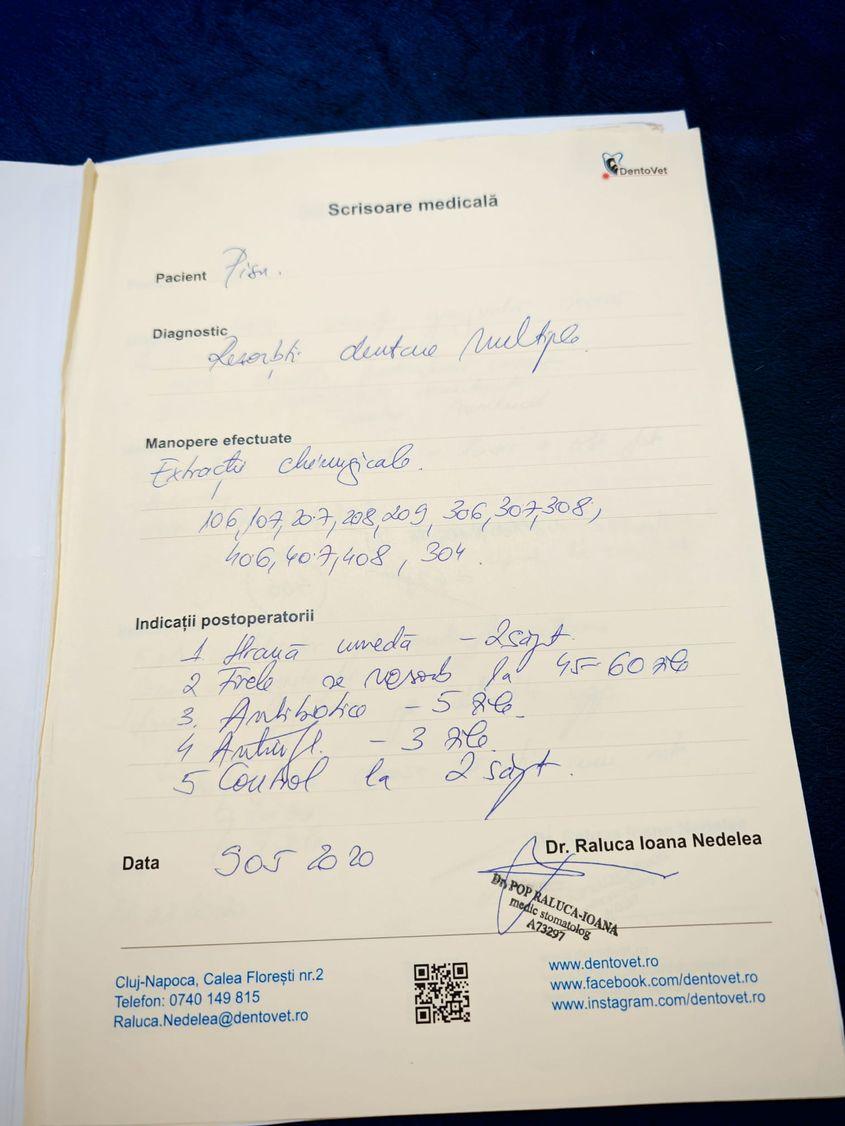 DentoVet
Scrisoare medicală
Pacient Pisu.
Diagnostic
Resorbții dentare multiple
Manopere efectuate
Extracții chirurgicale.
106, 107, 207, 208, 209, 306, 307, 308,
406, 407, 408, 304.
Indicații postoperatorii
1 Hrană umedă - 2 săpt.
2 Firele se resorb la 45-60 zile
3. Antibiotice - 5 zile.
4 Antiinfl. - 3 zile.
5 Control la 2 săpt.
Data 905 2020
Dr. Raluca Ioana Nedelea
Dr. POP RALUCA-IOANA
medic stomatolog
A73297
Cluj-Napoca, Calea Florești nr.2
Telefon: 0740 149 815
Raluca.Nedelea@dentovet.ro
www.dentovet.ro
www.facebook.com/dentovet.ro
www.instagram.com/dentovet.ro